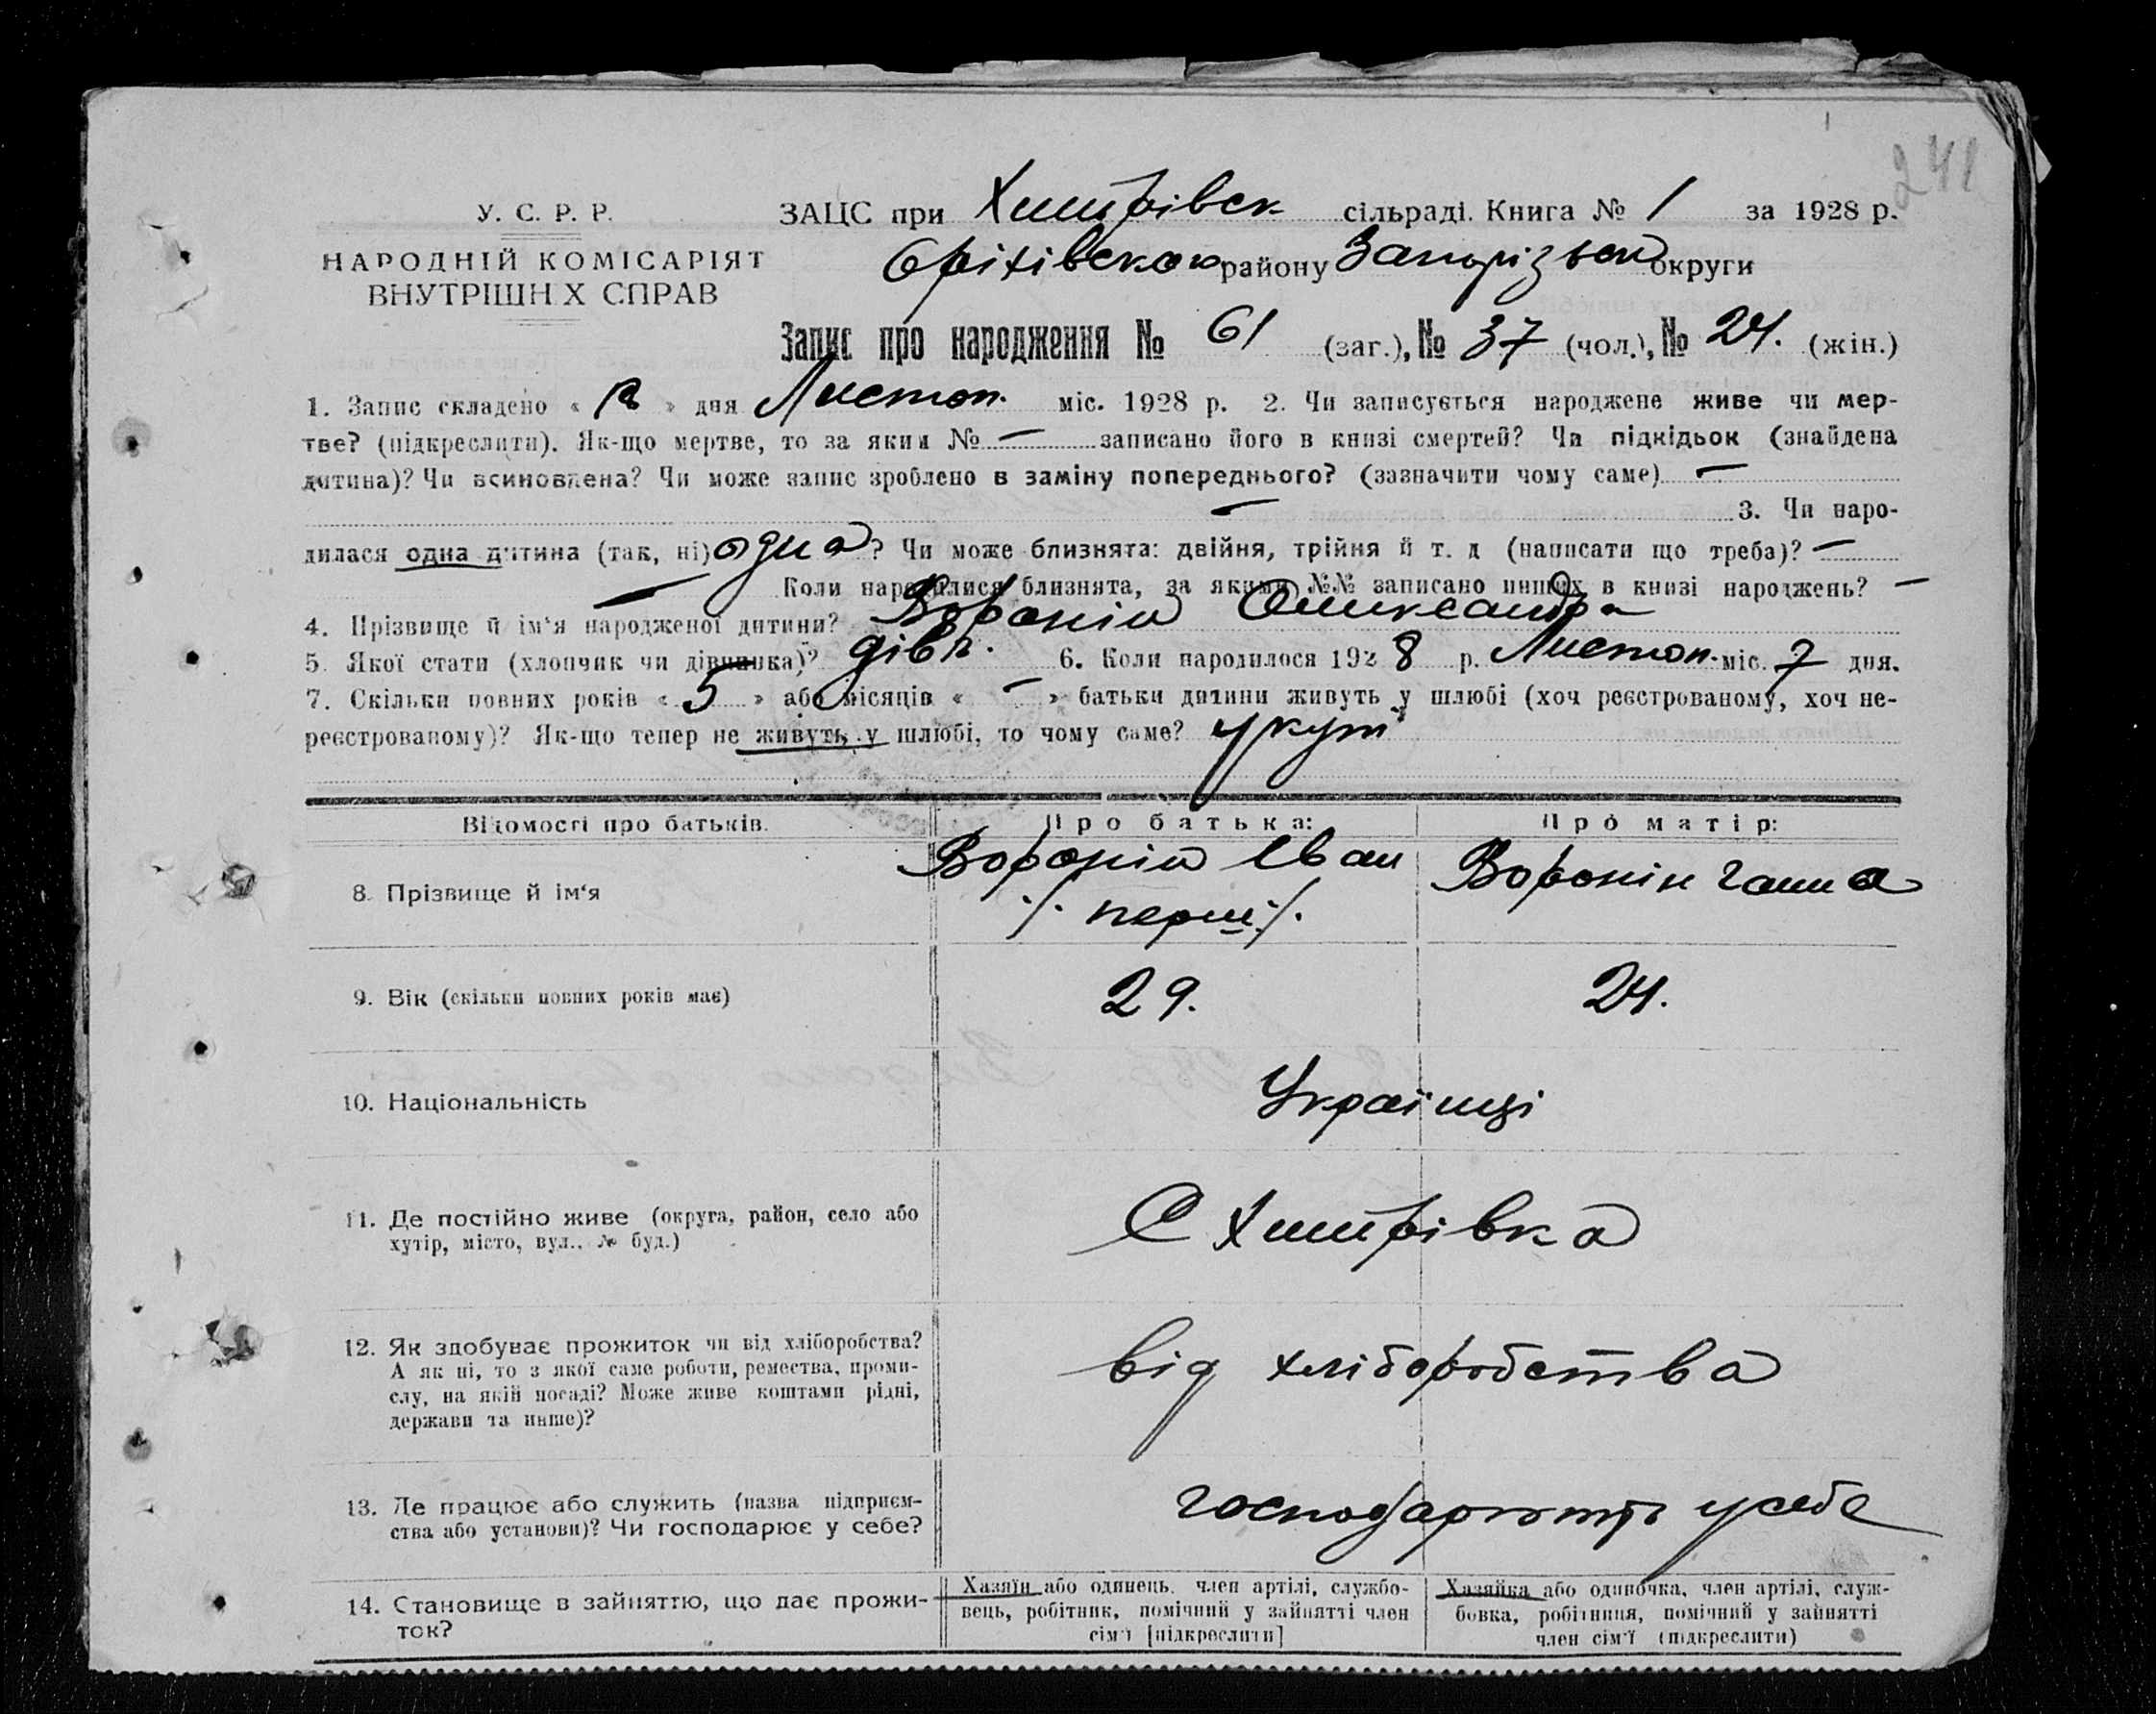 241
У. С. Р. Р.
НАРОДНІЙ КОМІСАРІЯТ
ВНУТРІШН Х СПРАВ
ЗАЦС при Хитрівск сільраді. Книга № 1 за 1928 р.
Оріхівского району Запорізької округи
Запис про народження № 61 (заг.), № 37 (чол.), № 24. (жін.)
1. Запис складено « » дня Листоп. міс. 1928 р. 2. Чи записується народжене живе чи мер-
тве? (підкреслити). Як-що мертве, то за яким № — записано його в книзі смертей? Чи підкідьок (знайдена
дитина)? Чи всиновлена? Чи може запис зроблено в заміну попереднього? (зазначити чому саме) —
— 3. Чи наро-
дилася одна дитина (так, ні) одна? Чи може близнята: двійня, трійня й т. д (написати що треба)? —
— Коли народилися близнята, за якими №№ записано инших в книзі народжень? —
4. Прізвище й ім'я народженої дитини? Воронін Олександра
5. Якої стати (хлопчик чи дівчинка)? дівч. 6. Коли народилося 1928 р. Листоп. міс. 7 дня.
7. Скільки повних років « 5 » або місяців « — » батьки дитини живуть у шлюбі (хоч реєстрованому, хоч не-
реєстрованому)? Як-що тепер не живуть у шлюбі, то чому саме? укупі
Відомості про батьків.
Про батька:
Про матір:
8. Прізвище й ім'я
Воронін Іван
/. перш /.
Воронін Ганна
9. Вік (скільки повних років має)
29.
24.
10. Національність
Українці
11. Де постійно живе (округа, район, село або
хутір, місто, вул., № буд.)
С Хитрівка
12. Як здобуває прожиток чи від хліборобства?
А як ні, то з якої саме роботи, ремества, проми-
слу, на якій посаді? Може живе коштами рідні,
держави та инше)?
від хліборобства
13. Де працює або служить (назва підприєм-
ства або установи)? Чи господарює у себе?
господарюють у себе
14. Становище в зайняттю, що дає прожи-
ток?
Хазяїн або одинець, член артілі, службо-
вець, робітник, помічний у зайнятті член
сім'ї [підкреслити]
Хазяйка або одиночка, член артілі, служ-
бовка, робітниця, помічний у зайнятті
член сім'ї (підкреслити)